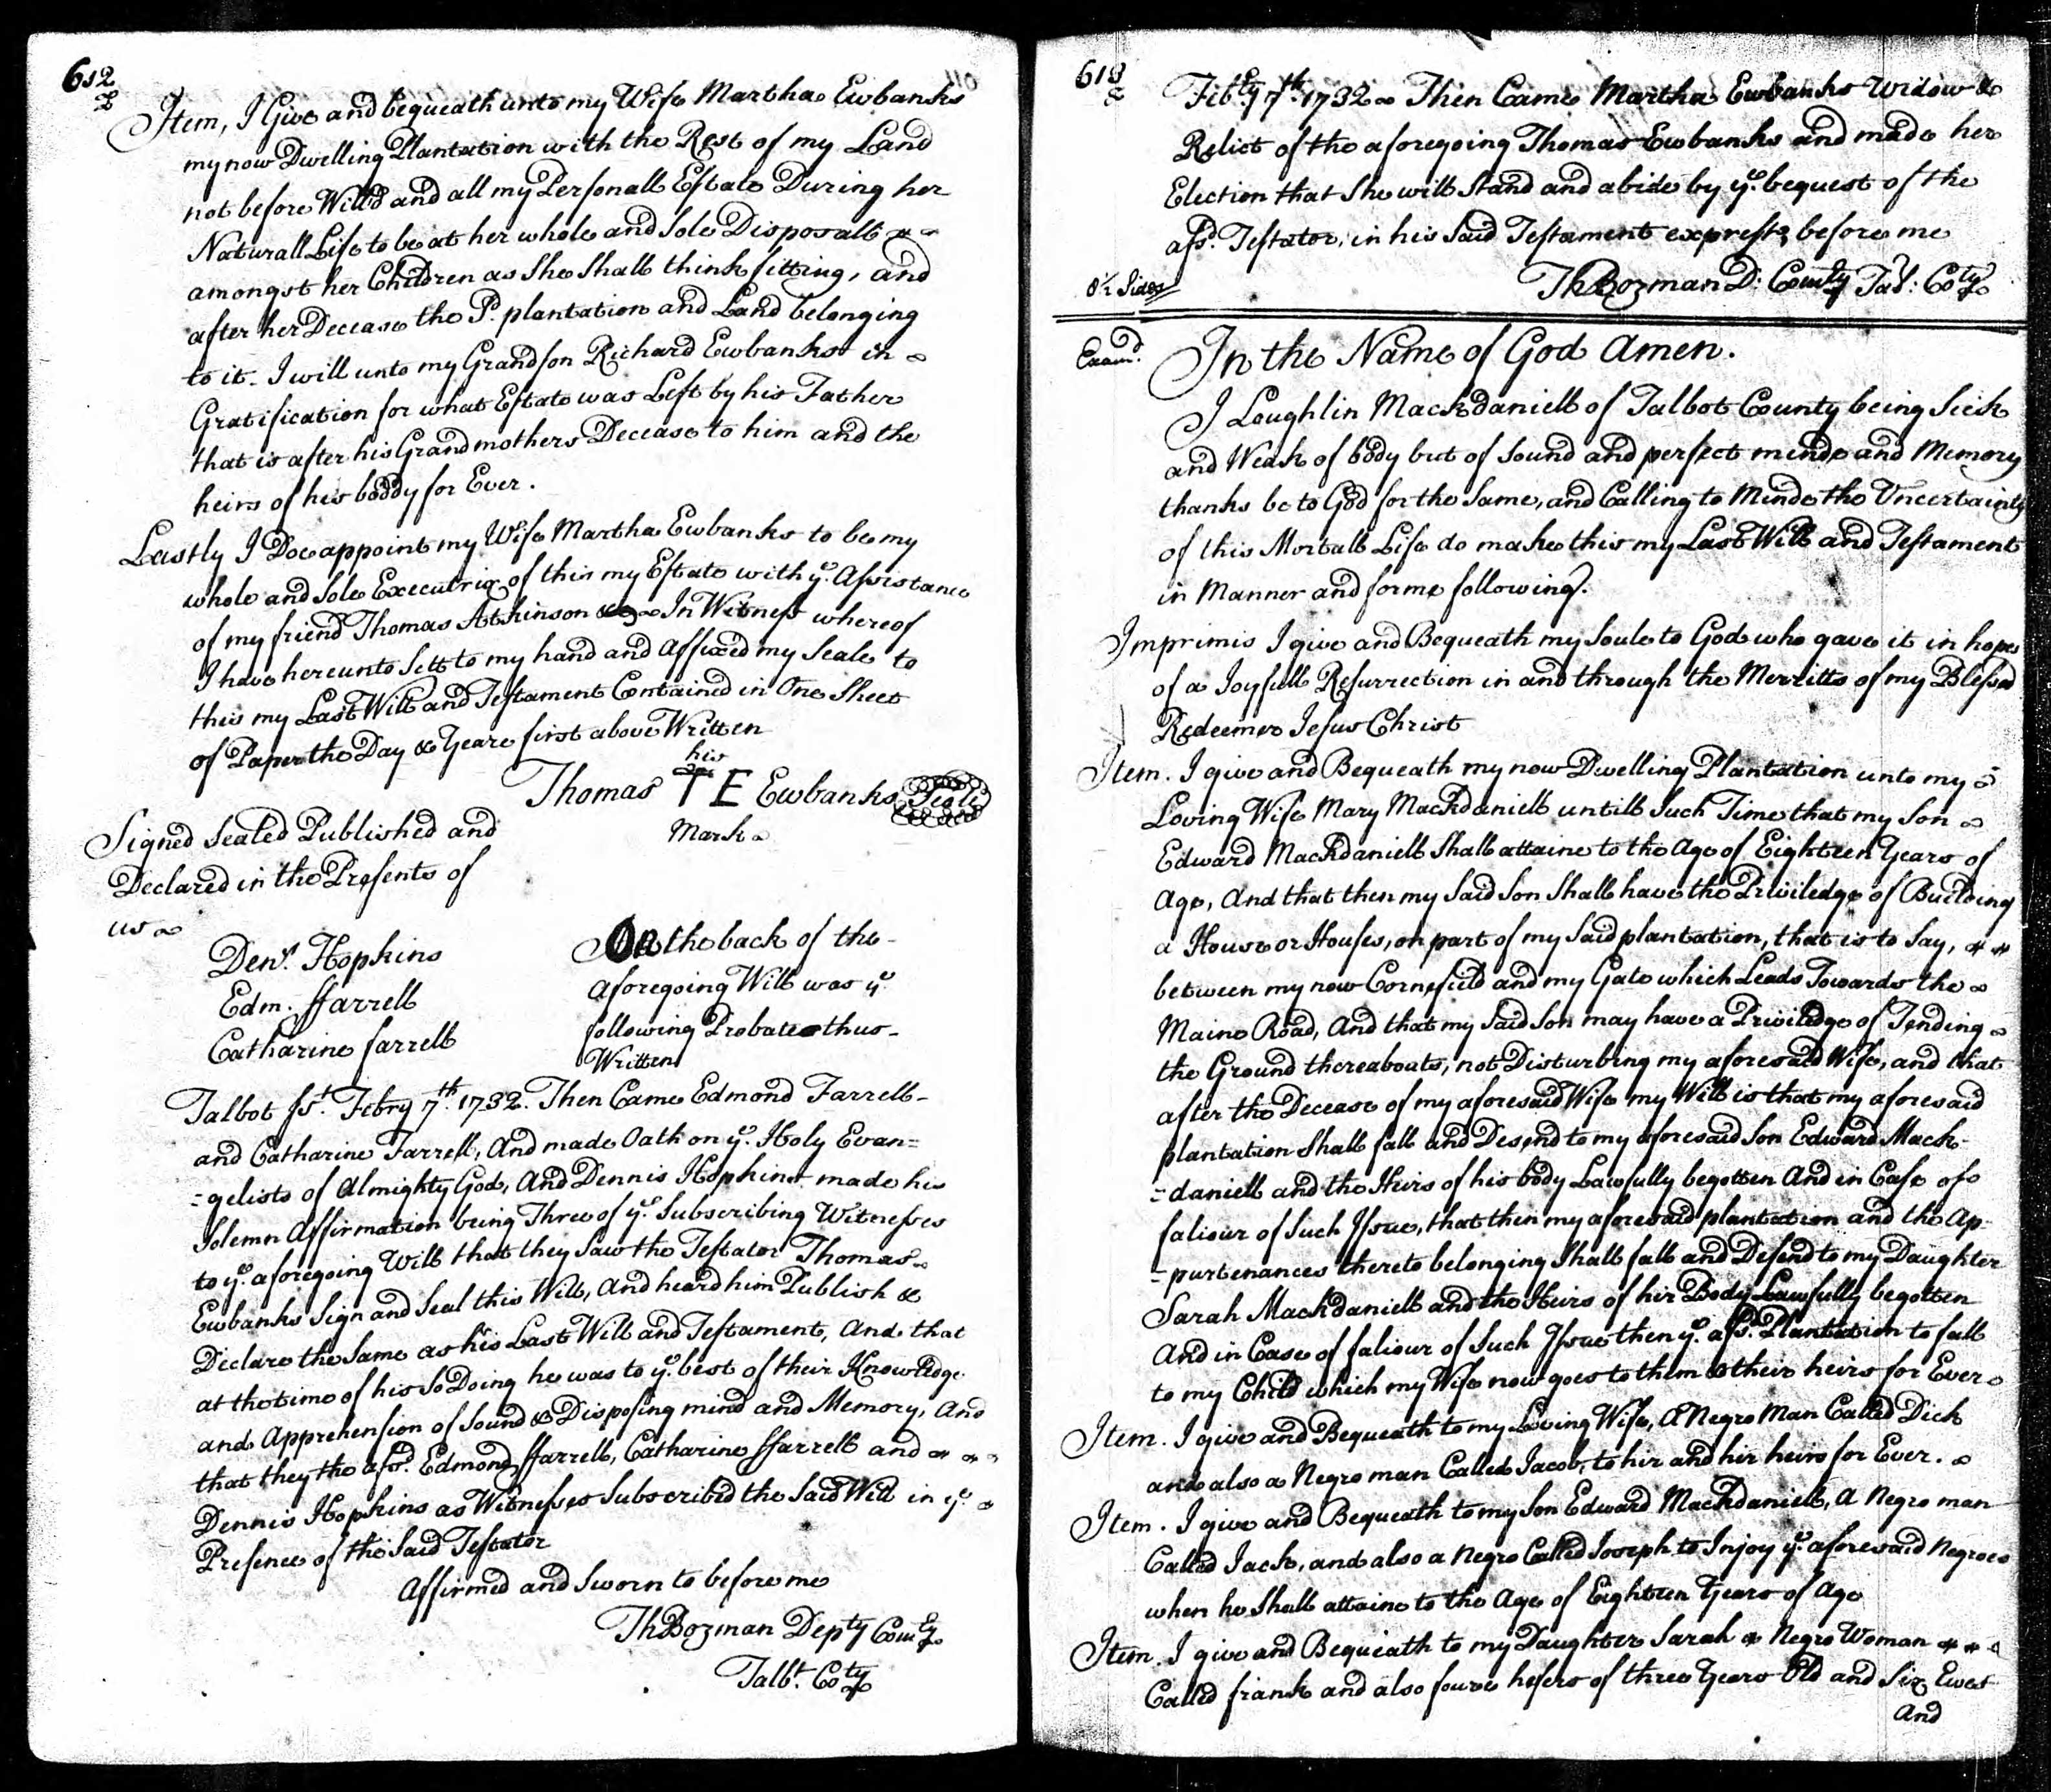 612
Item, I Give and bequeath unto my Wife Martha Ewbanks
my now Dwelling Plantation with the Rest of my Land
not before Will'd and all my Personall Estate During her
Naturall Life to be at her whole and Sole Disposall
amongst her Children as She Shall think fitting, and
after her Decease the Sd. plantation and Land belonging
to it. I will unto my Grandson Richard Ewbanks in
Gratification for what Estate was Left by his Father
that is after his Grandmothers Decease to him and the
heirs of his boddy for Ever.
Lastly I Doe appoint my Wife Martha Ewbanks to be my
whole and Sole Executrix of this my Estate with ye. Assistance
of my friend Thomas Atkinson In Witness whereof
I have hereunto Sett to my hand and Affixed my Seale to
this my Last Will and Testament Contained in One Sheet
of Paper the Day & Yeare first above Written
his
Thomas T E Ewbanks Seale
Mark
Signed Sealed Published and
Declared in the Presents of
us
Dens. Hopkins
Edm. ffarrell
Catharine farrell
On the back of the
aforegoing Will was ye
following Probate thus
Written
Talbot sst. Febry 7th. 1732. Then Came Edmond Farrell
and Catharine Farrell, And made Oath on ye. Holy Evan=
=gelists of Almighty God, And Dennis Hopkins made his
Solemn Affirmation being Three of ye. Subscribing Witnesses
to ye. aforegoing Will that they Saw the Testator Thomas
Ewbanks Sign and Seal this Will, And heard him Publish &
Declare the Same as his Last Will and Testament, And that
at the time of his So Doing he was to ye. best of their Knowledge
and Apprehension of Sound & Disposing mind and Memory, And
that they the afsd. Edmond ffarrell, Catharine ffarrell and
Dennis Hopkins as Witnesses Subscribed the Said Will in ye.
Presence of the Said Testator
Affirmed and Sworn to before me
Th Bozman Depty Comry
Talbt. Coty
613
Febry 7th. 1732 Then Came Martha Ewbanks Widow &
Relict of the aforegoing Thomas Ewbanks and made her
Election that She will Stand and abide by ye. bequest of the
afsd. Testator, in his Said Testament exprest, before me
Th Bozman D: Comry Tal: Coty
8½ Sides
Examd.
In the Name of God Amen.
I Loughlin Mackdaniell of Talbot County being Sick
and Weak of body but of Sound and perfect minde and Memory
thanks be to God for the Same, and Calling to Minde the Uncertainty
of this Mortall Life do make this my Last Will and Testament
in Manner and forme following.
Imprimis I give and Bequeath my Soule to God who gave it in hopes
of a Joyfull Resurrection in and through the Merritts of my Blessed
Redeemer Jesus Christ
Item. I give and Bequeath my now Dwelling Plantation unto my
Loving Wife Mary Mackdaniell untill Such Time that my Son
Edward Mackdaniell Shall attaine to the Age of Eighteen Years of
Age, And that then my Said Son Shall have the Priviledge of Building
a House or Houses, on part of my Said plantation, that is to Say,
between my now Cornefield and my Gate which Leads Towards the
Maine Road, And that my Said Son may have a Priviledge of Tending
the Ground thereabouts, not Disturbing my aforesaid Wife, and that
after the Decease of my aforesaid Wife my Will is that my aforesaid
plantation Shall fall and Desend to my aforesaid Son Edward Mack-
=daniell and the Heirs of his body Lawfully begotten And in Case of
faliour of Such Issue, that then my aforesaid plantation and the Ap-
=purtenances thereto belonging Shall fall and Desend to my Daughter
Sarah Mackdaniell and the Heirs of hir Body Lawfully begotten
And in Case of faliour of Such Issue then ye. afsd. Plantation to fall
to my Child which my Wife now goes to them & their heirs for Ever
Item. I give and Bequeath to my Loving Wife, A Negro Man Called Dick
and also a Negro man Called Jacob, to hir and hir heirs for Ever.
Item. I give and Bequeath to my Son Edward Mackdaniell, A Negro man
Called Jack, and also a Negro Called Joseph to Injoy ye. aforesaid Negroes
when he Shall attaine to the Age of Eighteen Years of Age
Item. I give and Bequeath to my Daughter Sarah a Negro Woman
Called frank and also foure hefers of three Years Old and Six Ewes
And